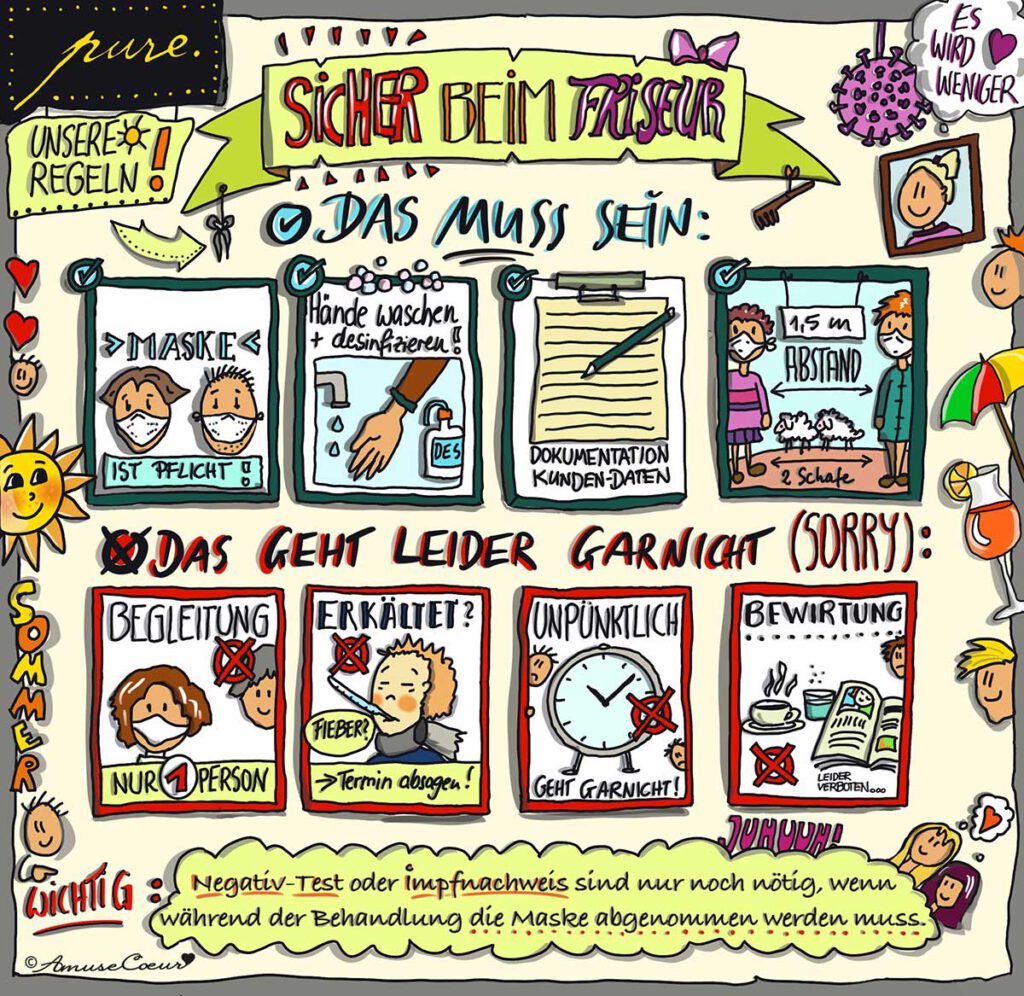 pure.
UNSERE
REGELN!
SICHER BEIM FRISEUR
ES
WIRD
WENIGER
DAS MUSS SEIN:
>MASKE<
IST PFLICHT!
Hände waschen
+ desinfizieren!
DES
DOKUMENTATION
KUNDEN-DATEN
1,5 m
ABSTAND
2 Schafe
DAS GEHT LEIDER GARNICHT (SORRY):
BEGLEITUNG
NUR 1 PERSON
ERKÄLTET?
FIEBER?
→Termin absagen!
UNPÜNKTLICH
GEHT GARNICHT!
BEWIRTUNG
LEIDER
VERBOTEN...
SOMMER
JUHUUH!
WICHTIG:
Negativ-Test oder Impfnachweis sind nur noch nötig, wenn
während der Behandlung die Maske abgenommen werden muss.
©AmuseCoeur